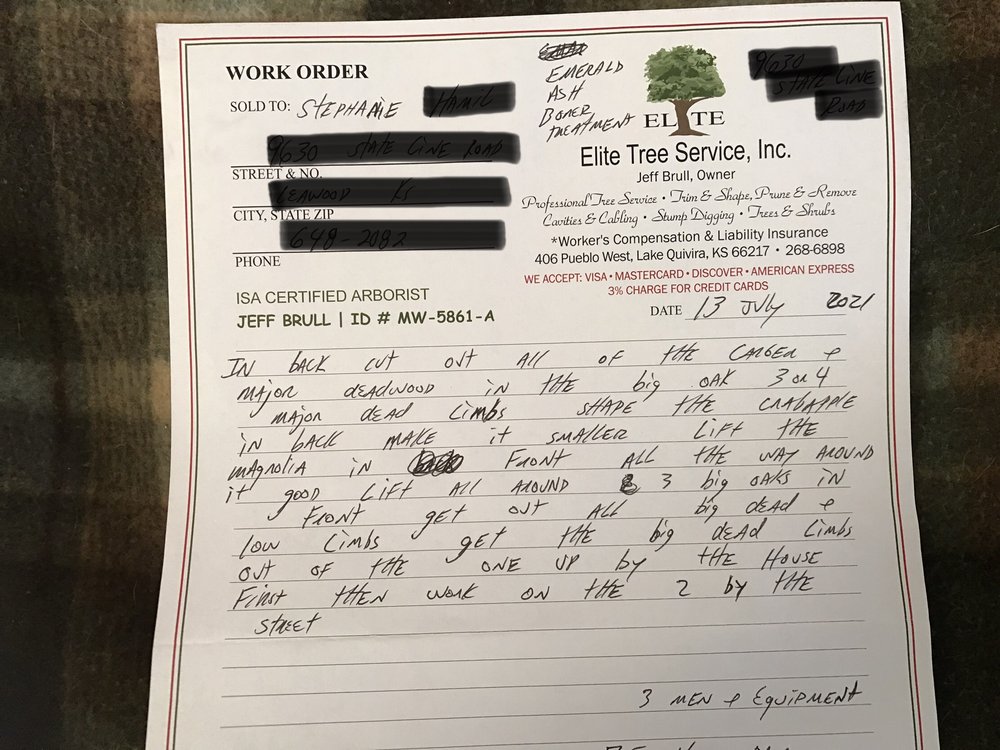 WORK ORDER
SOLD TO: STEPHANIE
STREET & NO.
CITY, STATE ZIP
PHONE
ISA CERTIFIED ARBORIST
JEFF BRULL | ID # MW-5861-A
EMERALD
ASH
BORER
TREATMENT
ELITE
Elite Tree Service, Inc.
Jeff Brull, Owner
Professional Tree Service • Trim & Shape, Prune & Remove
Cavities & Cabling • Stump Digging • Trees & Shrubs
*Worker's Compensation & Liability Insurance
406 Pueblo West, Lake Quivira, KS 66217 • 268-6898
WE ACCEPT: VISA • MASTERCARD • DISCOVER • AMERICAN EXPRESS
3% CHARGE FOR CREDIT CARDS
DATE 13 July 2021
IN bACK CUT OUT ALL OF THE LARGER &
MAJOR DEADWOOD in THE big OAK 3 or 4
MAJOR DEAD Limbs SHAPE THE CRABAPPLE
in bACK MAKE it SMALLER Lift THE
MAGNOLIA in FRONT ALL THE WAY AROUND
it good Lift ALL AROUND 3 big OAKS iN
FRONT get OUT ALL big DEAD &
LOW Limbs get THE big DEAD Limbs
OUT OF THE ONE UP by THE HOUSE
First THEN WORK ON THE 2 by THE
STREET
3 MEN & EquipMENT